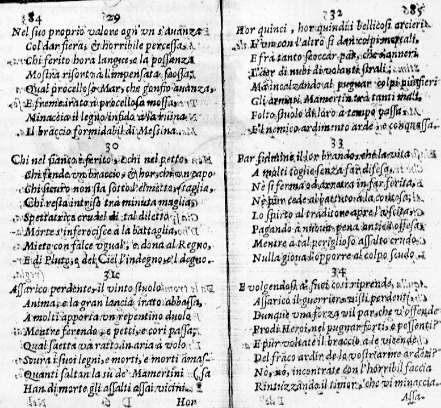 184
29
Nel suo proprio valore ogn'vn s'auanza
Col dar fiera, & horribile percossa,
Chi ferito hora langue, e la possanza
Mostra risorta l'impensata scossa,
Qual procelloso Mar, che gonfio auanza,
E freme irato à procellosa mossa,
Minaccia il legno infido alla ruina
Il braccio formidabil di Messina.
30
Chi nel fianco è ferito, e chi nel petto,
Chi fende vn braccio, & hor, chi vn capo
Chi sicuro non sia sotto l'elmetto, scaglia,
Chi resta inciso trà minuta maglia,
Spettatrice crudel di tal diletto
Morte s'inferocisce à la battaglia,
Miete con falce vgual, e dona al Regno,
E di Pluto, e del Ciel l'indegno, e'l degno
31
Assarico perdente, il vinto stuolo
Anima, e la gran lancia irato abbassa,
A molti apporta vn repentino duolo
Mentre ferendo, e petti, e cori passa,
Qual saetta và ratto in aria à volo
Soura i suoi legni, e morti, e morti amas-
Quanti saltan la sù de' Mamertini (sa
Han di morte gli assalti assai vicini.
Hor
185
32
Hor quinci, hor quindi i bellicosi arcieri
E l'vn con l'altro si dan colpi mortali,
E frà tanto scoccar par, che s'anneri
L'aer di nubi di volanti strali;
Ma inoltrando al pugnar colpi più fieri
Gli armati Mamertin trà tanti mali,
Folto stuolo di loro à tempo passa,
E'l nemico ardimento arde, e conquassa.
33
Par fulmine il lor brando, che la vita
A molti toglie senza far difesa,
Nè si ferma od arretra in far ferita,
Nè pur cede al patto, à la contesa,
Lo spirto al traditore apre l'vscita,
Pagando à niuno pena antica offesa
Mentre à tal periglioso assalto crudo
Nulla gioua l'opporre al colpo scudo
34
E volgendosi à suoi così riprende,
Assarico il guerriero vili perdenti,
Dunque vna forza vil par, che v'offende
Prodi Heroi, nel pugnar forti, e possenti?
E pur voltate il braccio à le vicende
Del fiaco ardir de lo vostrarme ardenti?
Nò, nò, incontrate con l'horribil faccia
Rintuzzando il timor, che vi minaccia
Assa-